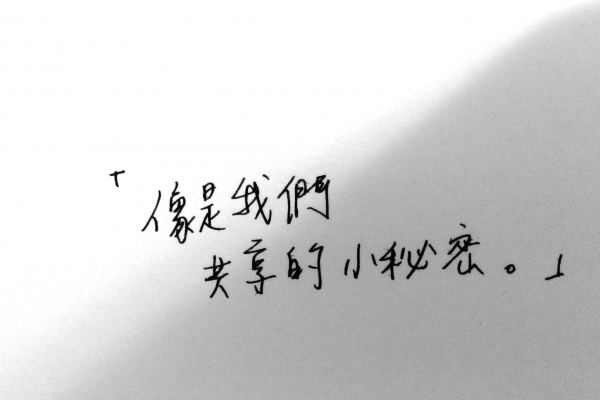 「像是我們
共享的小秘密。」